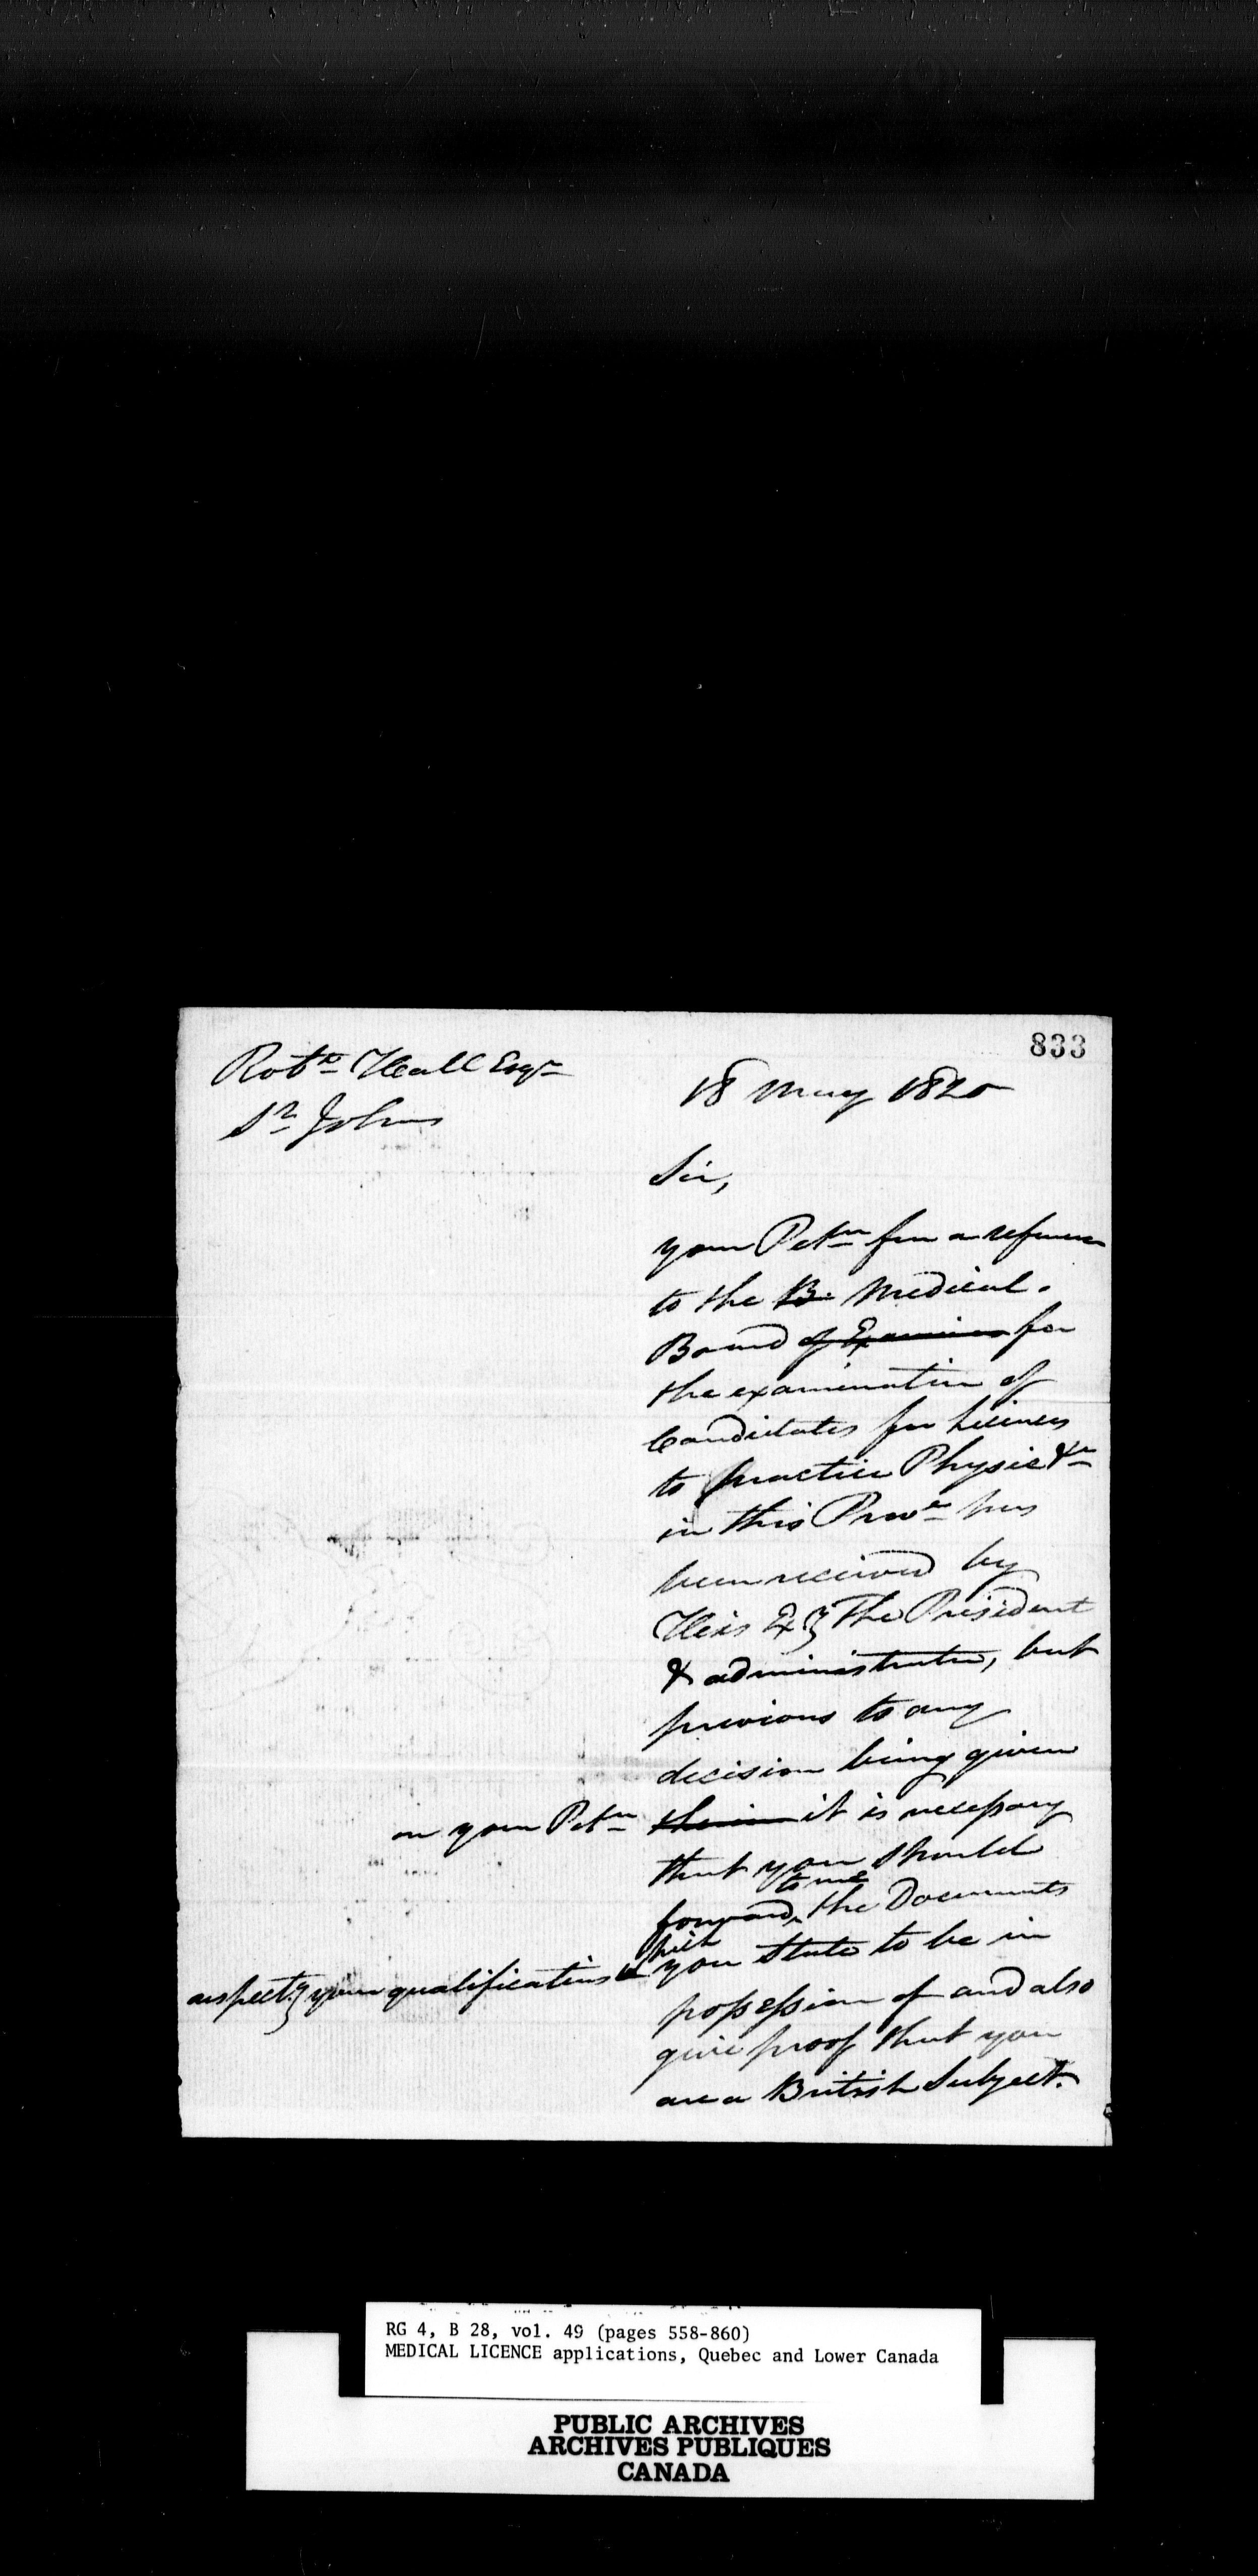 833
Robt Hall Esqr
St Johns
18 May 1820
Sir,
your Petn for a reference
to the B. Medical
Board of Examiners for
the examination of
Candidates for Licences
to practice Physic &c
in this Prove has
been received by
His Exy The President
& administrator, but
previous to any
decision being given
on your Petn therein it is necessary
that you should
to me
forward, the Documents
respectg your qualifications which you state to be in
possession of and also
give proof that you
are a British Subject.
RG 4, B 28, vol. 49 (pages 558-860)
MEDICAL LICENCE applications, Quebec and Lower Canada
PUBLIC ARCHIVES
ARCHIVES PUBLIQUES
CANADA